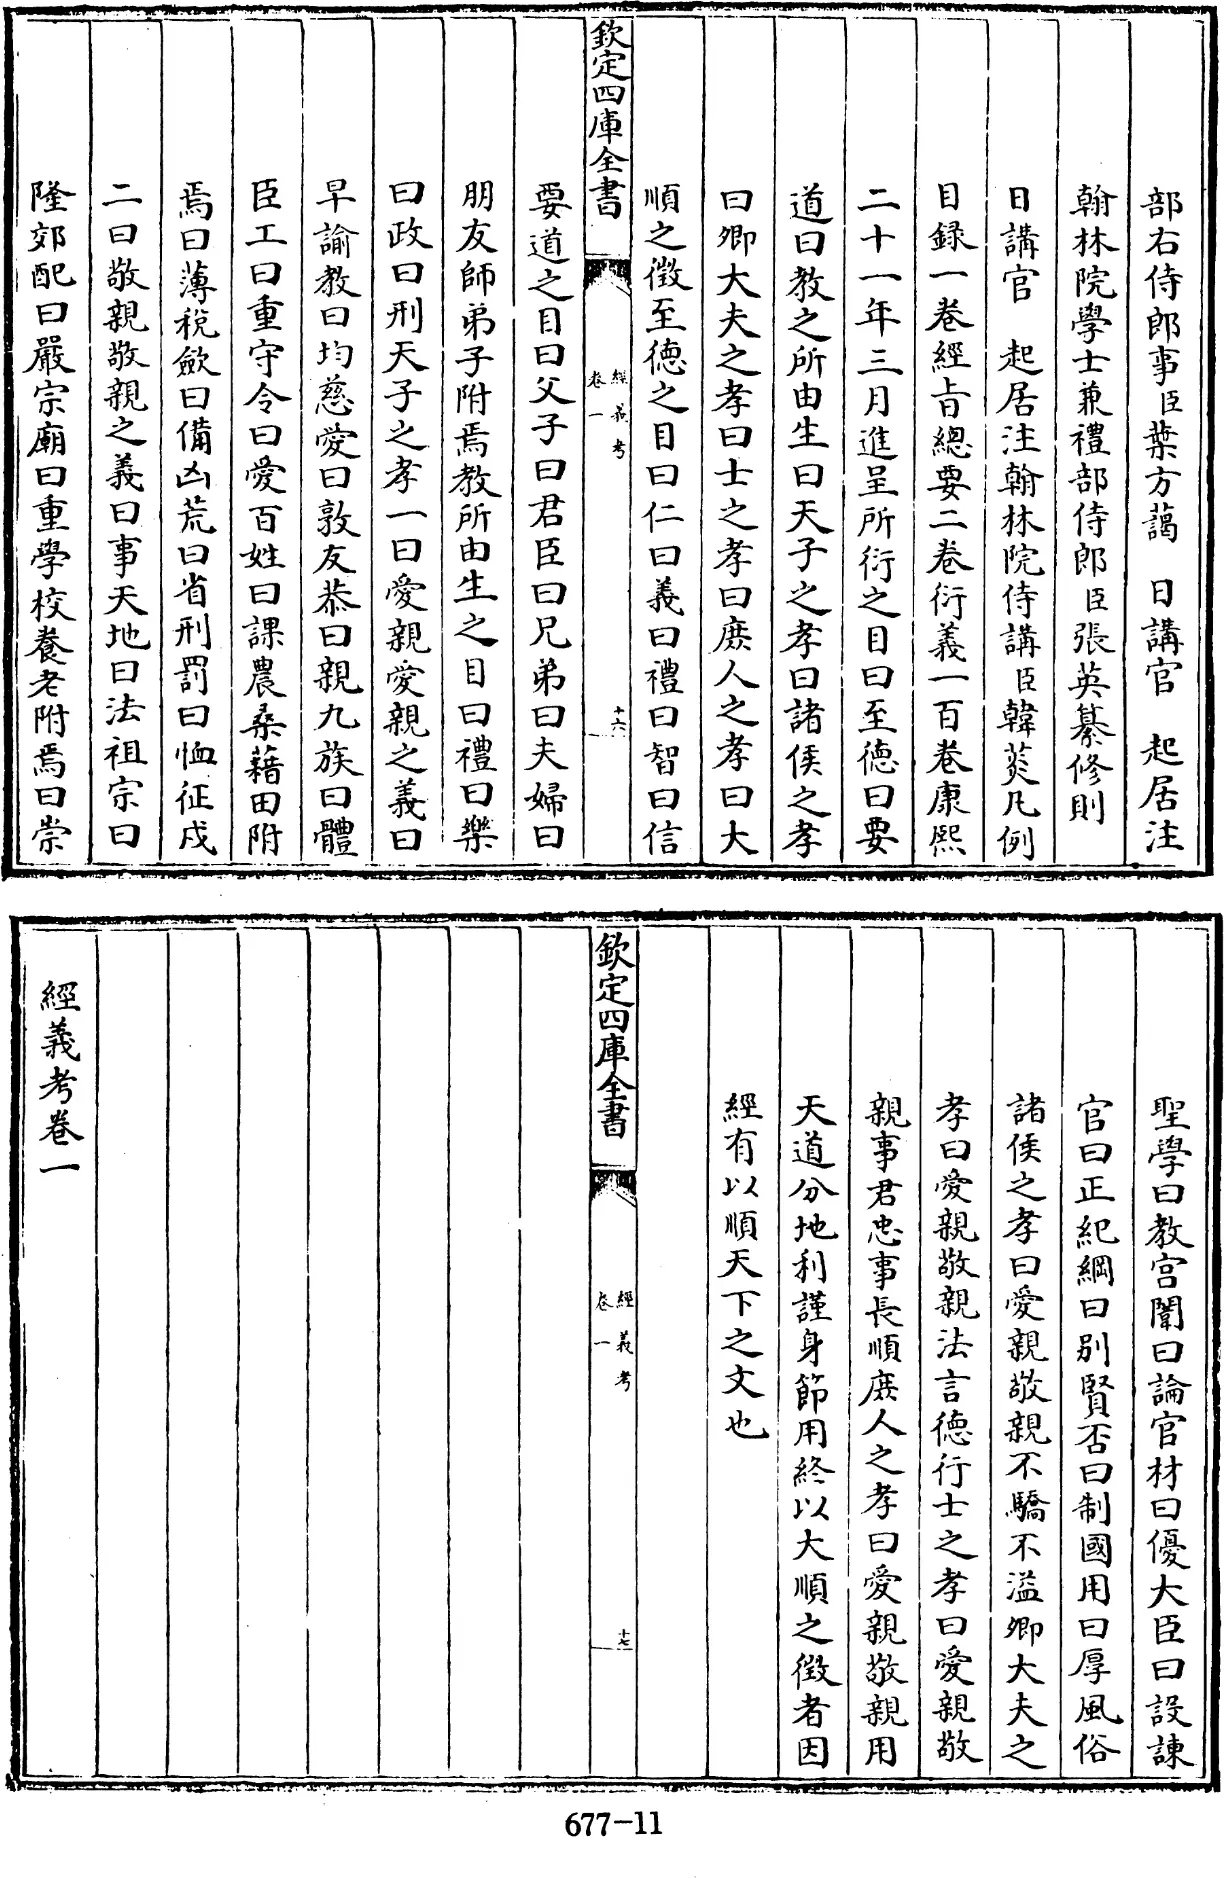 部右侍郎事臣葉方藹　日講官　起居注
翰林院學士兼禮部侍郎臣張英纂修則
日講官　起居注翰林院侍講臣韓菼凡例
目録一卷經旨總要二卷衍義一百卷康熙
二十一年三月進呈所衍之目曰至德曰要
道曰教之所由生曰天子之孝曰諸侯之孝
曰卿大夫之孝曰士之孝曰庶人之孝曰大
順之徵至德之目曰仁曰義曰禮曰智曰信
欽定四庫全書
經義考
卷一
十六
要道之目曰父子曰君臣曰兄弟曰夫婦曰
朋友師弟子附焉教所由生之目曰禮曰樂
曰政曰刑天子之孝一曰愛親愛親之義曰
早諭教曰均慈愛曰敦友恭曰親九族曰體
臣工曰重守令曰愛百姓曰課農桑藉田附
焉曰薄稅歛曰備凶荒曰省刑罰曰恤征戍
二曰敬親敬親之義曰事天地曰法祖宗曰
隆郊配曰嚴宗廟曰重學校養老附焉曰崇
聖學曰教宫闈曰論官材曰優大臣曰設諫
官曰正紀綱曰別賢否曰制國用曰厚風俗
諸侯之孝曰愛親敬親不驕不溢卿大夫之
孝曰愛親敬親法言德行士之孝曰愛親敬
親事君忠事長順庶人之孝曰愛親敬親用
天道分地利謹身節用終以大順之徵者因
經有以順天下之文也
欽定四庫全書
經義考
卷一
十七
經義考卷一
677-11